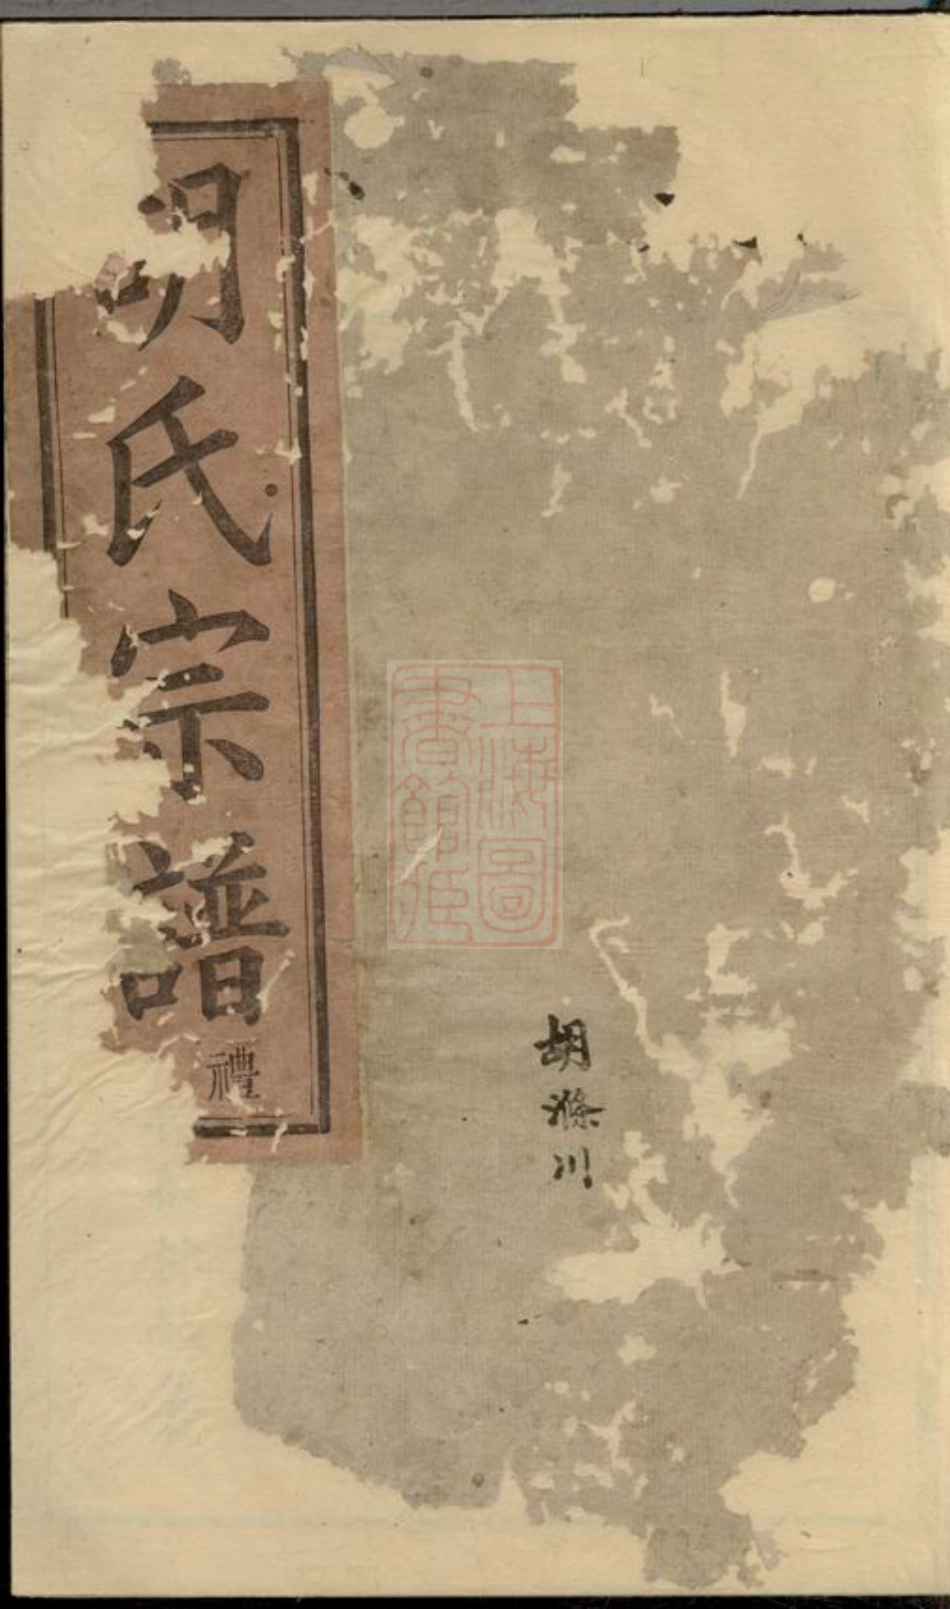 胡氏宗譜
禮
胡滌川
上海圖
書館藏